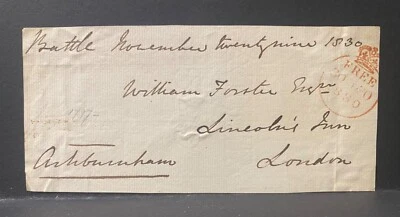 Battle November twentynine 1830
William Forster Esqr
Lincoln's Inn
Ashburnham
London
FREE
1830